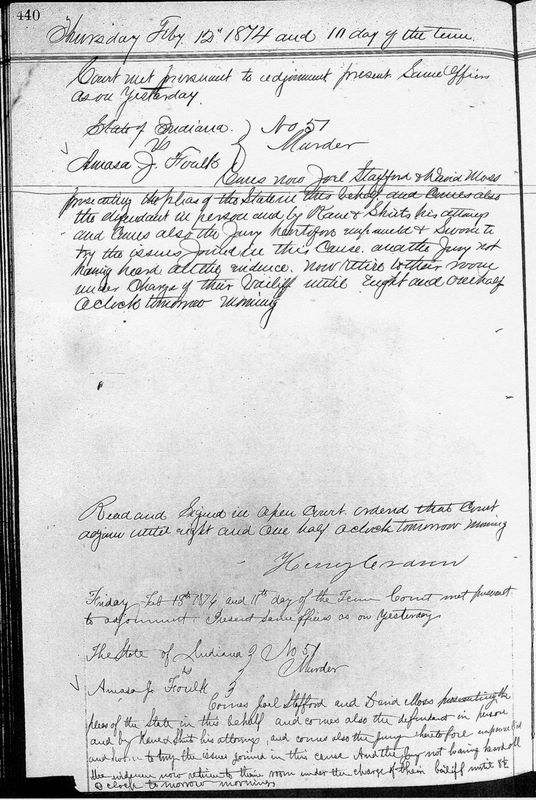 440
Thursday Feby. 12" 1874 and 10 day of the term
Court met pursuant to adjornment present Same Officers
as on Yesterday.
State of Indiana. ) No 51
vs Murder
Amasa J. Foulk
Comes now Joel Stafford & David Moss
prosecuting the pleas of the State in this behalf and comes also
the defendant in person and by Kane & Shirts his attorneys
and comes also the Jury heretofore impaneled & sworn to
try the issues joined in this cause. and the Jury not
having heard all the evidence. now retire to their room
under charge of their Bailiff until Eight and one half
oclock tomorrow morning
Read and Signed in open Court. ordered that Court
adjourn until eight and one half oclock tomorrow morning
Friday Feb 13th 1874 and 11th day of the Term Court met pursuant
to adjournment. Present same officers as on Yesterday
The State of Indiana } No 51
vs Murder
Amasa J. Foulk }
Comes Joel Stafford and David Moss prosecuting the
pleas of the State in this behalf and comes also the defendant in person
and by Kane & Shirts his attorneys, and comes also the jury heretofore impaneled
and sworn to try the issues joined in this cause And the jury not having heard all
the evidence now retire to their room under the charge of their bailiff until 8½
o clock tomorrow morning